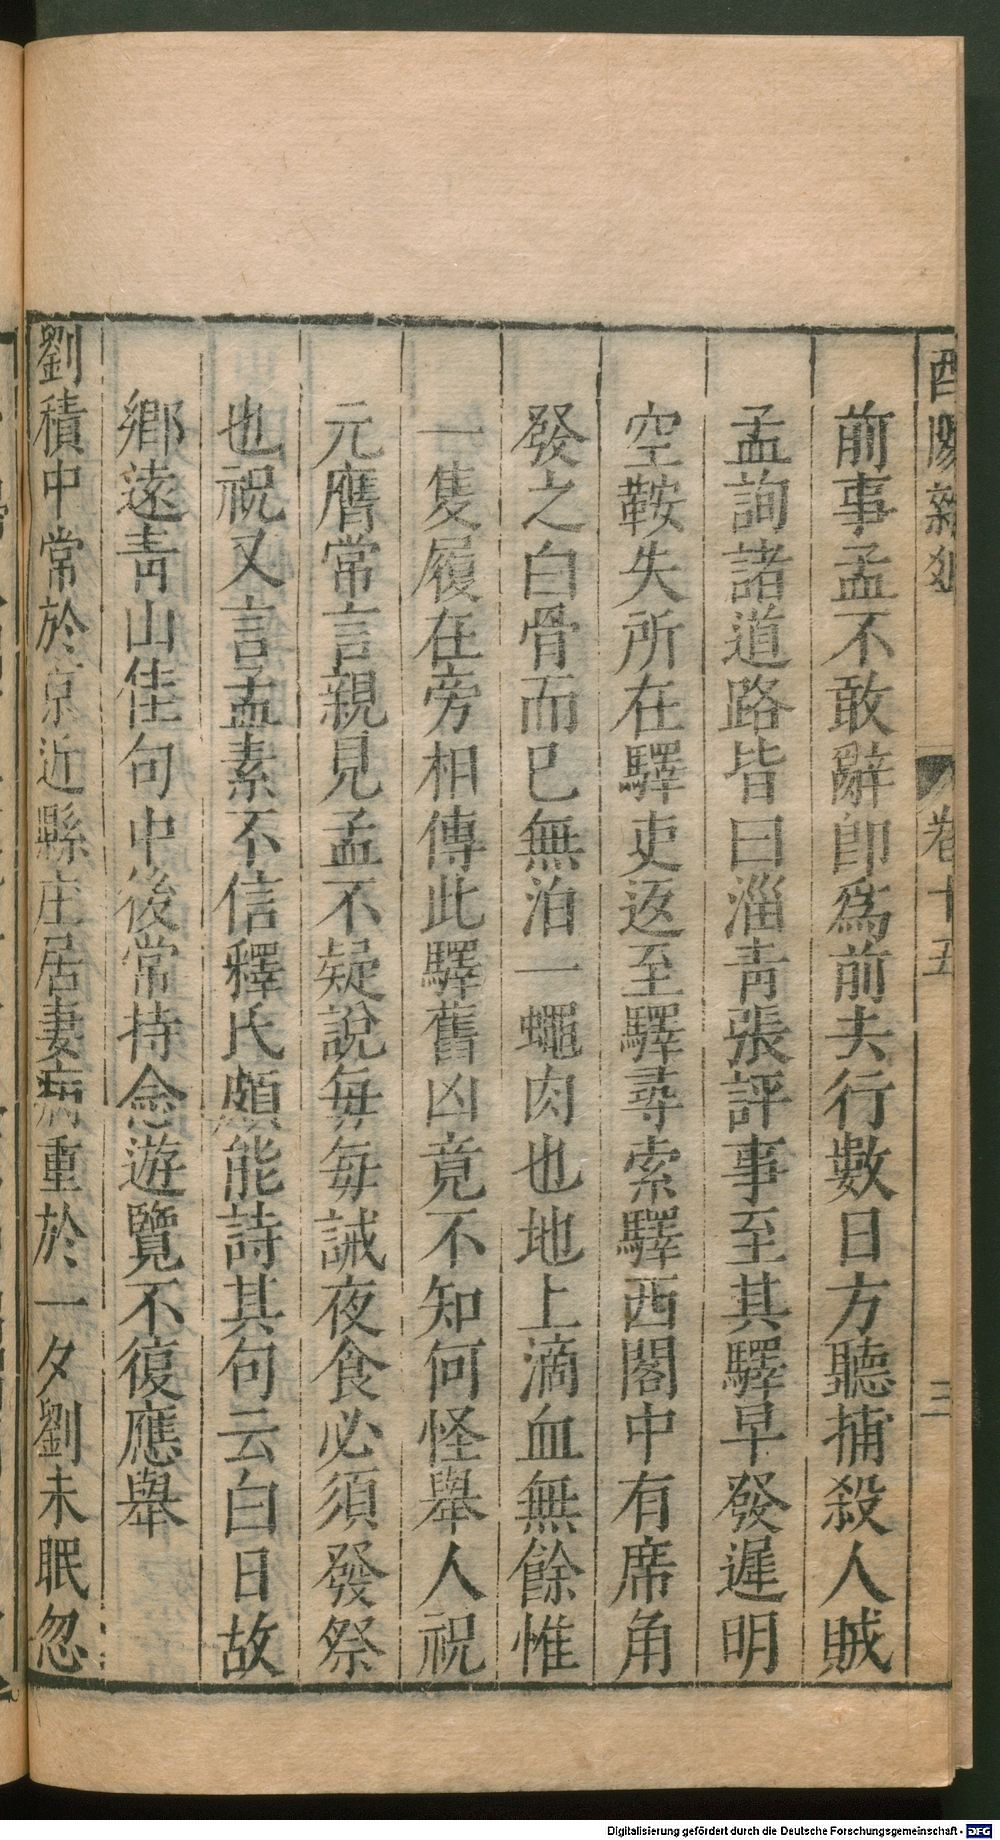 酉陽雜俎 卷十五 三
前事孟不敢辭卽爲前去行數日方聽捕殺人賊
孟詢諸道路皆曰淄靑張評事至其驛早發遲明
空鞍失所在驛吏返至驛尋索驛西閣中有席角
發之白骨而已無泊一蠅肉也地上滴血無餘惟
一隻履在旁相傳此驛舊凶竟不知何怪舉人祝
元膺常言親見孟不疑說每每誡夜食必須發祭
也祝又言孟素不信釋氏頗能詩其句云白日故
鄉遠靑山佳句中後常持念遊覽不復應舉
劉積中常於京近縣庄居妻病重於一夕劉未眠忽
Digitalisierung gefördert durch die Deutsche Forschungsgemeinschaft - DFG